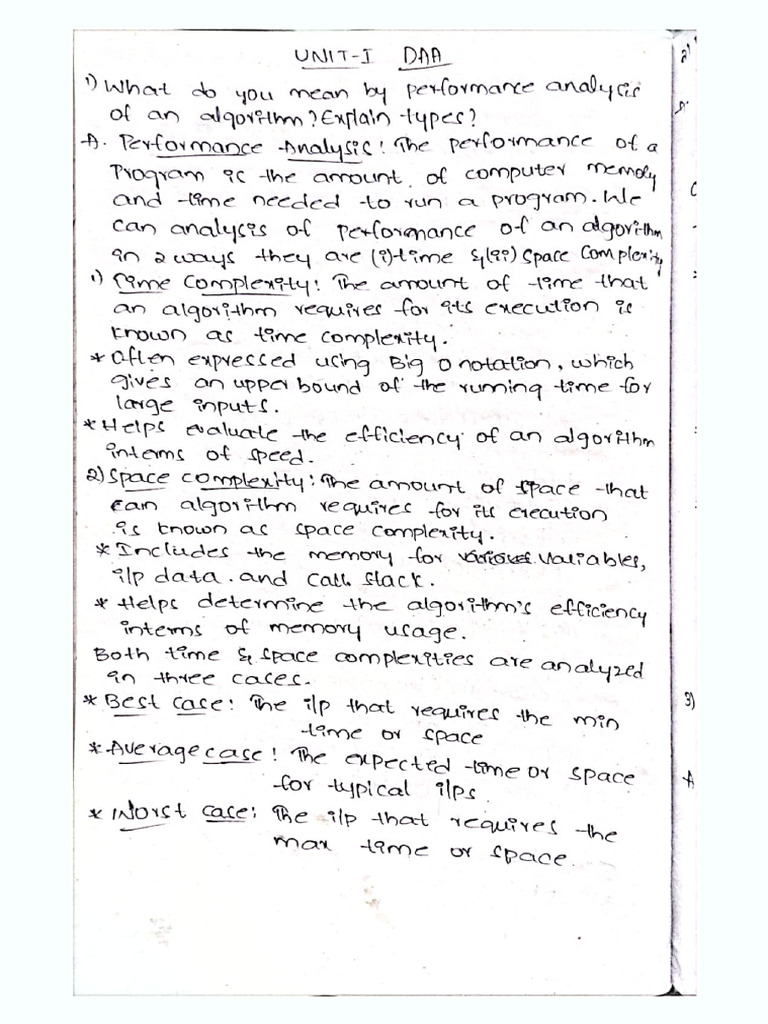 UNIT-I DAA
1) What do you mean by performance analysis
of an algorithm? Explain types?
A. Performance Analysis: The performance of a
Program is the amount of computer memory
and time needed to run a program. We
can analysis of performance of an algorithm
in 2 ways they are (i) time &(ii) Space Complexity
1) Time Complexity: The amount of time that
an algorithm requires for its execution is
known as time complexity.
* Often expressed using Big O notation, which
gives an upper bound of the running time for
large inputs.
* Helps evaluate the efficiency of an algorithm
interms of speed.
2) Space complexity: The amount of space that
can algorithm requires for its execution
is known as space complexity.
* Includes the memory for variables,
i/p data. and call stack.
* Helps determine the algorithm's efficiency
interms of memory usage.
Both time & space complexities are analyzed
in three cases.
* Best case: The i/p that requires the min
time or space
* Average case: The expected time or space
for typical i/ps
* Worst case: The i/p that requires the
max time or space.
2)
3)
A